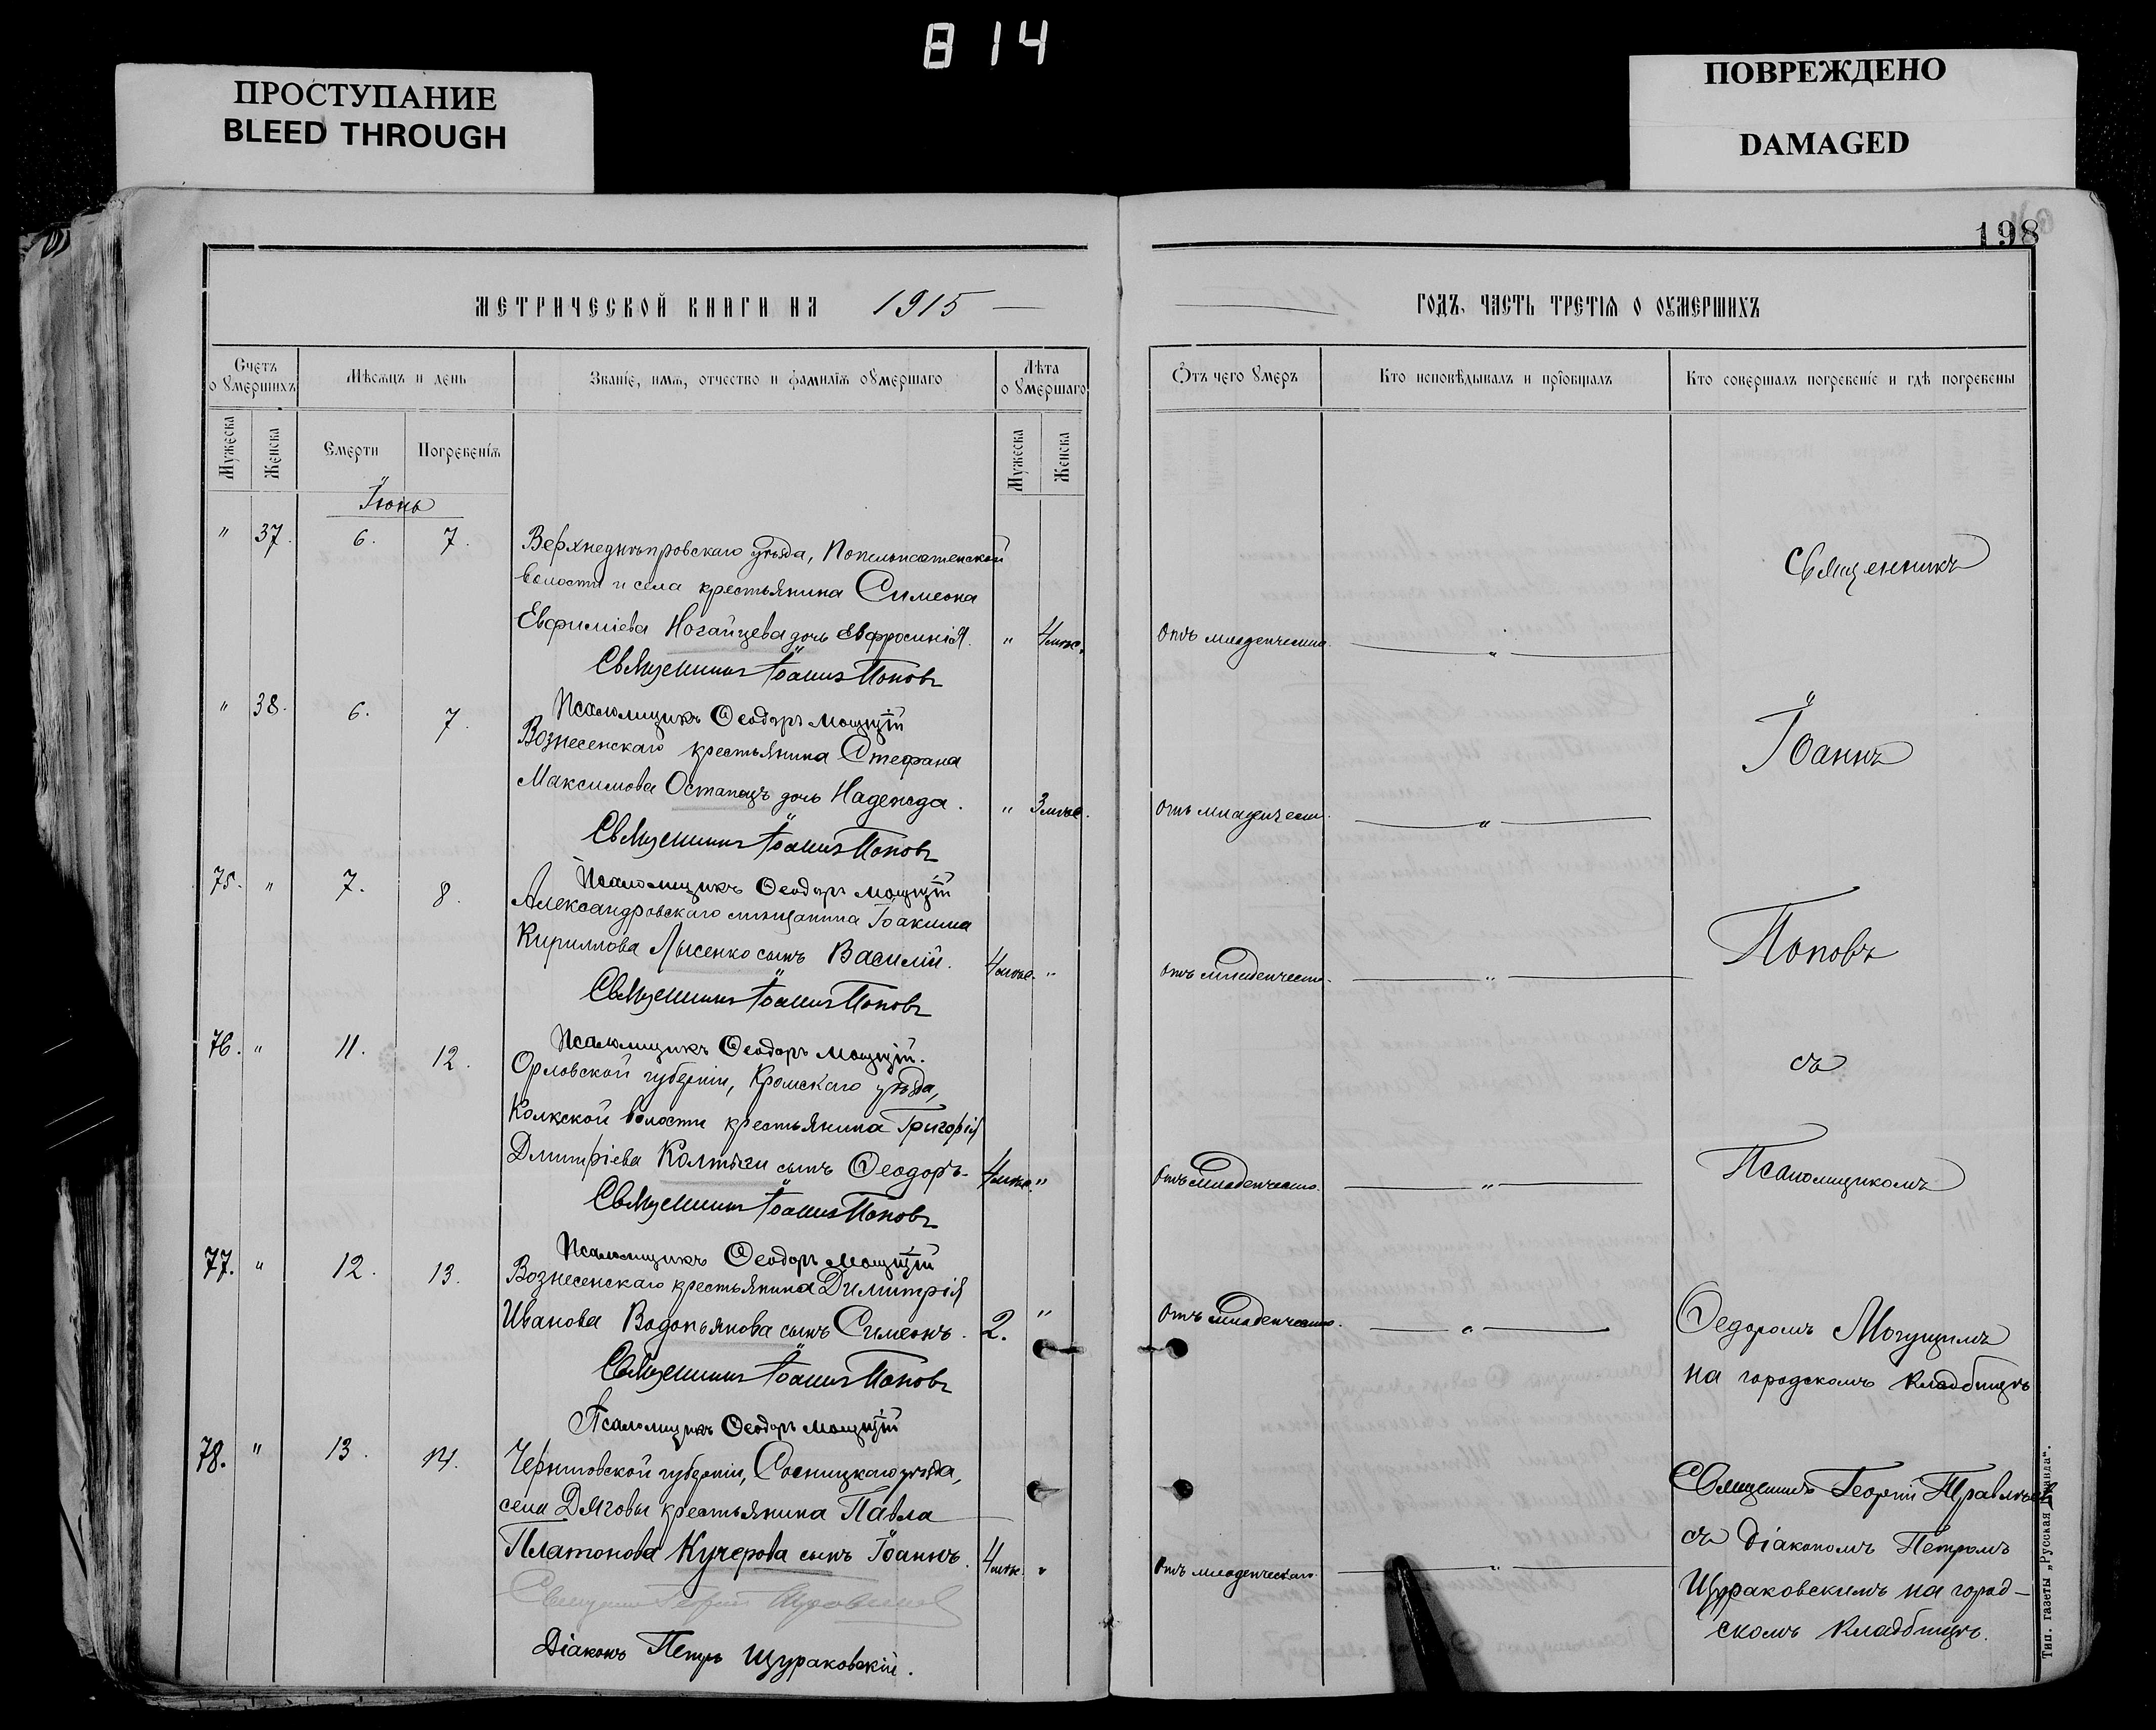 814
ПРОСТУПАНИЕ
BLEED THROUGH
ПОВРЕЖДЕНО
DAMAGED
198
МЕТРИЧЕСКОЙ КНИГИ НА 1915
ГОДЪ, ЧАСТЬ ТРЕТІЯ О ОУМЕРШИХЪ
Счетъ оумершихъ
Мѣсяцъ и день
Званіе, имя, отчество и фамилія оумершаго
Лѣта оумершаго
Отъ чего умеръ
Кто исповѣдывалъ и пріобщалъ
Кто совершалъ погребеніе и гдѣ погребены
Мужеска
Женска
Смерти
Погребенія
Мужеска
Женска
Іюнь
" 37. 6. 7. Верхнеднѣпровскаго уѣзда,
волости и села крестьянина Симеона
Евфиміева Ногайцева дочь Евфросинія. " 4 мѣс. Отъ младенческ.
Священникъ Іоаннъ Поповъ
Псаломщикъ Ѳеодоръ
" 38. 6. 7. Вознесенскаго крестьянина Стефана
Максимова Остапецъ дочь Надежда. " 3 мѣс. Отъ младенческ.
Священникъ Іоаннъ Поповъ
Псаломщикъ Ѳеодоръ
75. " 7. 8. Александровскаго мѣщанина Іоакима
Кириллова Лысенко сынъ Василій. 4 мѣс. " Отъ младенческ.
Священникъ Іоаннъ Поповъ
Псаломщикъ Ѳеодоръ
76. " 11. 12. Орловской губерніи, Кромскаго уѣзда,
волости крестьянина Григорія
Дмитріева сынъ Ѳеодоръ. 4 мѣс. " Отъ младенческ.
Священникъ Іоаннъ Поповъ
Псаломщикъ Ѳеодоръ
77. " 12. 13. Вознесенскаго крестьянина Димитрія
Иванова Водопьянова сынъ Симеонъ. 2. " Отъ младенческ.
Священникъ Іоаннъ Поповъ
Псаломщикъ Ѳеодоръ
78. " 13. 14. Черниговской губерніи, Сосницкаго уѣзда,
села Дяговы крестьянина Павла
Платонова Кучерова сынъ Іоаннъ. 4 мѣс. " Отъ младенческаго
Священникъ Георгій
Діаконъ Петръ Щураковскій.
Священникъ
Іоаннъ
Поповъ
съ
Псаломщикомъ
Ѳедоромъ
на городскомъ кладбищѣ
Священникъ Георгій
съ Діакономъ Петромъ
Щураковскимъ на город-
скомъ кладбищѣ.
Тип. газеты „Русская Правда“.